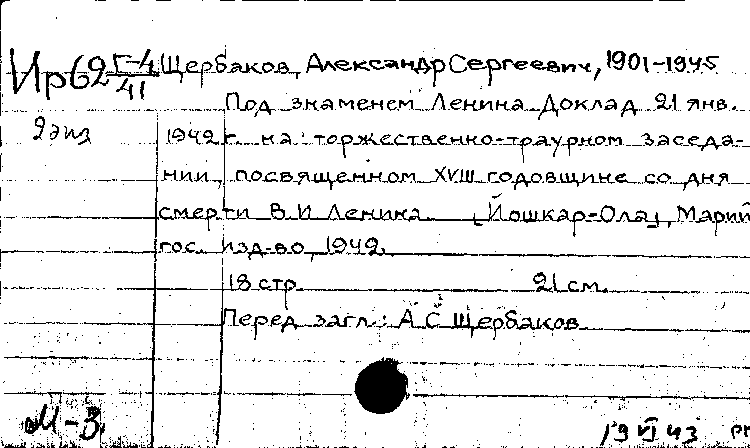 Ир62 Г-4/41 Щербаков, Александр Сергеевич, 1901-1945
Под знаменем Ленина Доклад 21 янв.
2 экз 1942 г. на торжественно-траурном заседа-
нии, посвященном XVIII годовщине со дня
смерти В. И Ленина. [Йошкар-Ола], Марий
гос. изд-во, 1942.
18 стр. 21 см.
Перед загл.: А С Щербаков
М-3
19 VI 43